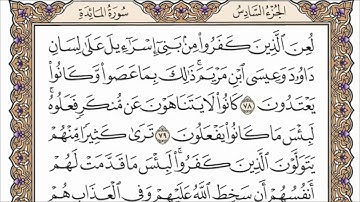 الجزء السادس سورة المائدة
لُعِنَ ٱلَّذِينَ كَفَرُوا۟ مِنۢ بَنِىٓ إِسْرَٰٓءِيلَ عَلَىٰ لِسَانِ
دَاوُۥدَ وَعِيسَى ٱبْنِ مَرْيَمَ ۚ ذَٰلِكَ بِمَا عَصَوا۟ وَّكَانُوا۟
يَعْتَدُونَ ٧٨ كَانُوا۟ لَا يَتَنَاهَوْنَ عَن مُّنكَرٍ فَعَلُوهُ ۚ
لَبِئْسَ مَا كَانُوا۟ يَفْعَلُونَ ٧٩ تَرَىٰ كَثِيرًا مِّنْهُمْ
يَتَوَلَّوْنَ ٱلَّذِينَ كَفَرُوا۟ ۚ لَبِئْسَ مَا قَدَّمَتْ لَهُمْ
أَنفُسُهُمْ أَن سَخِطَ ٱللَّهُ عَلَيْهِمْ وَفِى ٱلْعَذَابِ هُمْ